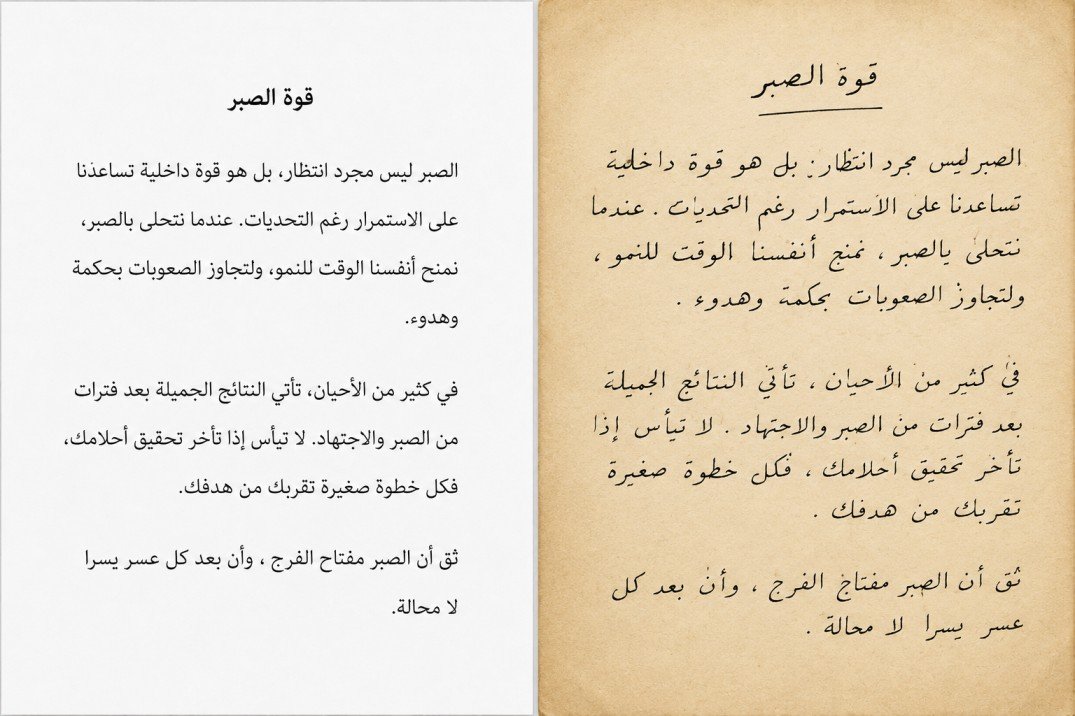 قوة الصبر
الصبر ليس مجرد انتظار، بل هو قوة داخلية تساعدنا
على الاستمرار رغم التحديات. عندما نتحلى بالصبر،
نمنح أنفسنا الوقت للنمو، ولتجاوز الصعوبات بحكمة
وهدوء.
في كثير من الأحيان، تأتي النتائج الجميلة بعد فترات
من الصبر والاجتهاد. لا تيأس إذا تأخر تحقيق أحلامك،
فكل خطوة صغيرة تقربك من هدفك.
ثق أن الصبر مفتاح الفرج ، وأن بعد كل عسر يسرا
لا محالة.
قوة الصبر
الصبر ليس مجرد انتظار: بل هو قوة داخلية
تساعدنا على الأستمرار رغم التحديات . عندما
نتحلى يالصبر ، نمنج أنفسنا الوقت للنمو ،
ولتجاوز الصعوبات بحكمة وهدوء .
في كثير من الأحيان ، تأتي النتائج الجميلة
بعد فترات من الصبر والاجتهاد . لا تيأس إذا
تأخر تحقيق أحلامك ، فكل خطوة صغيرة
تقربك من هدفك .
ثق أن الصبر مفتاج الفرج ، وأن بعد كل
عسر يسرا لا محالة .